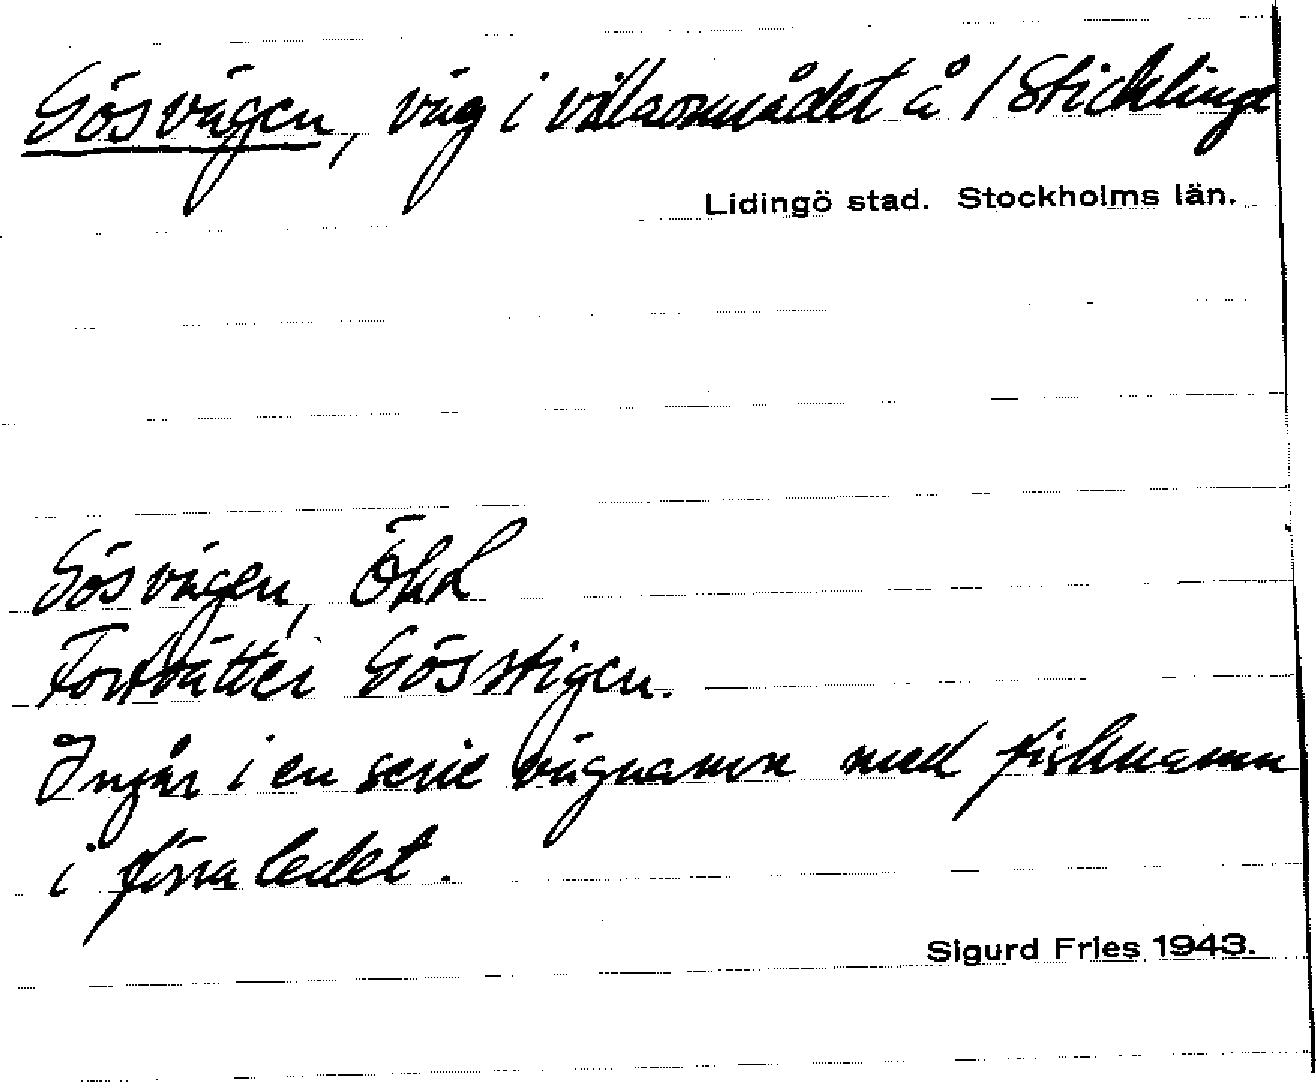 Gösvägen, väg i villaområdet å / Sticklinge
Lidingö stad. Stockholms län.
Gösvägen, Ökd
Fortsätter Gösstigen.
Ingår i en serie vägnamn med fisknamn
i förra ledet.
Sigurd Fries 1943.